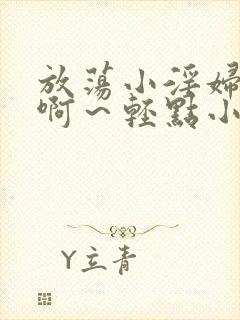 放蕩小淫婦
啊~輕點小
Y立青